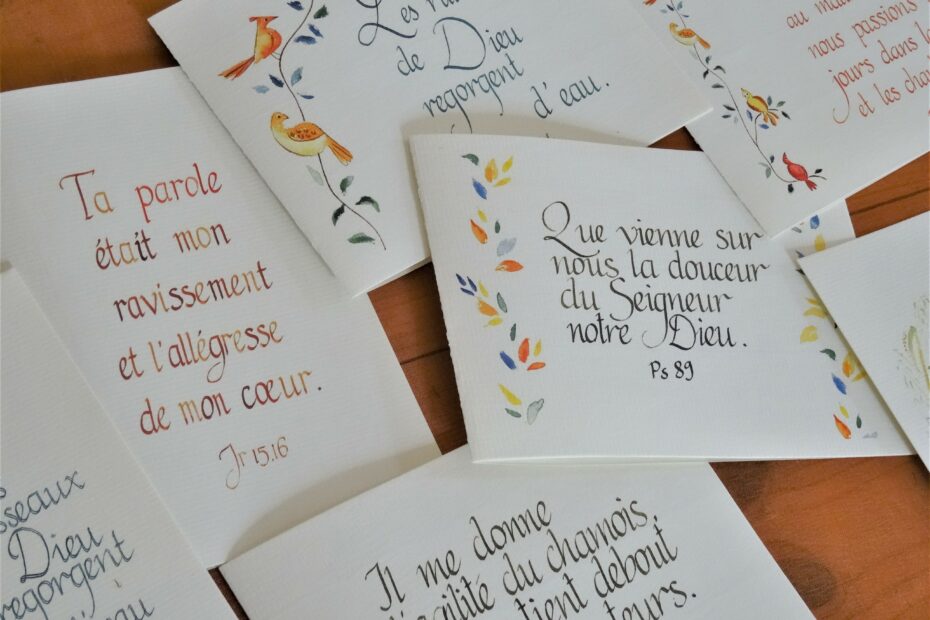 de Dieu
regorgent
d'eau.
au
nous passions
jours dans
et les
Ta parole
était mon
ravissement
et l'allégresse
de mon cœur.
Jr 15.16
Que vienne sur
nous la douceur
du Seigneur
notre Dieu.
Ps 89
Dieu
regorgent
Il me donne
du chamois,
tient debout